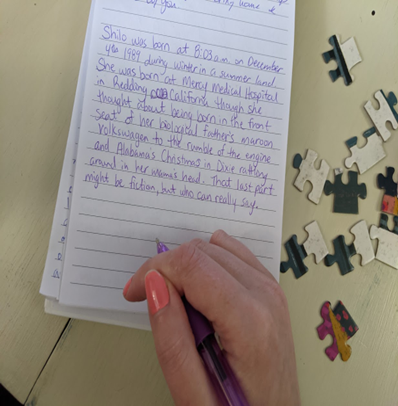 you
Shilo was born at 8:03 a.m. on December
4th 1999 during winter in a summer land.
She was born at Mercy Medical Hospital
in Redding California though she
thought about being born in the front
seat of her biological father's maroon
Volkswagen to the rumble of the engine
and Alabamas Christmas in Dixie rattling
around in her mama's head. That last part
might be fiction, but who can really say.